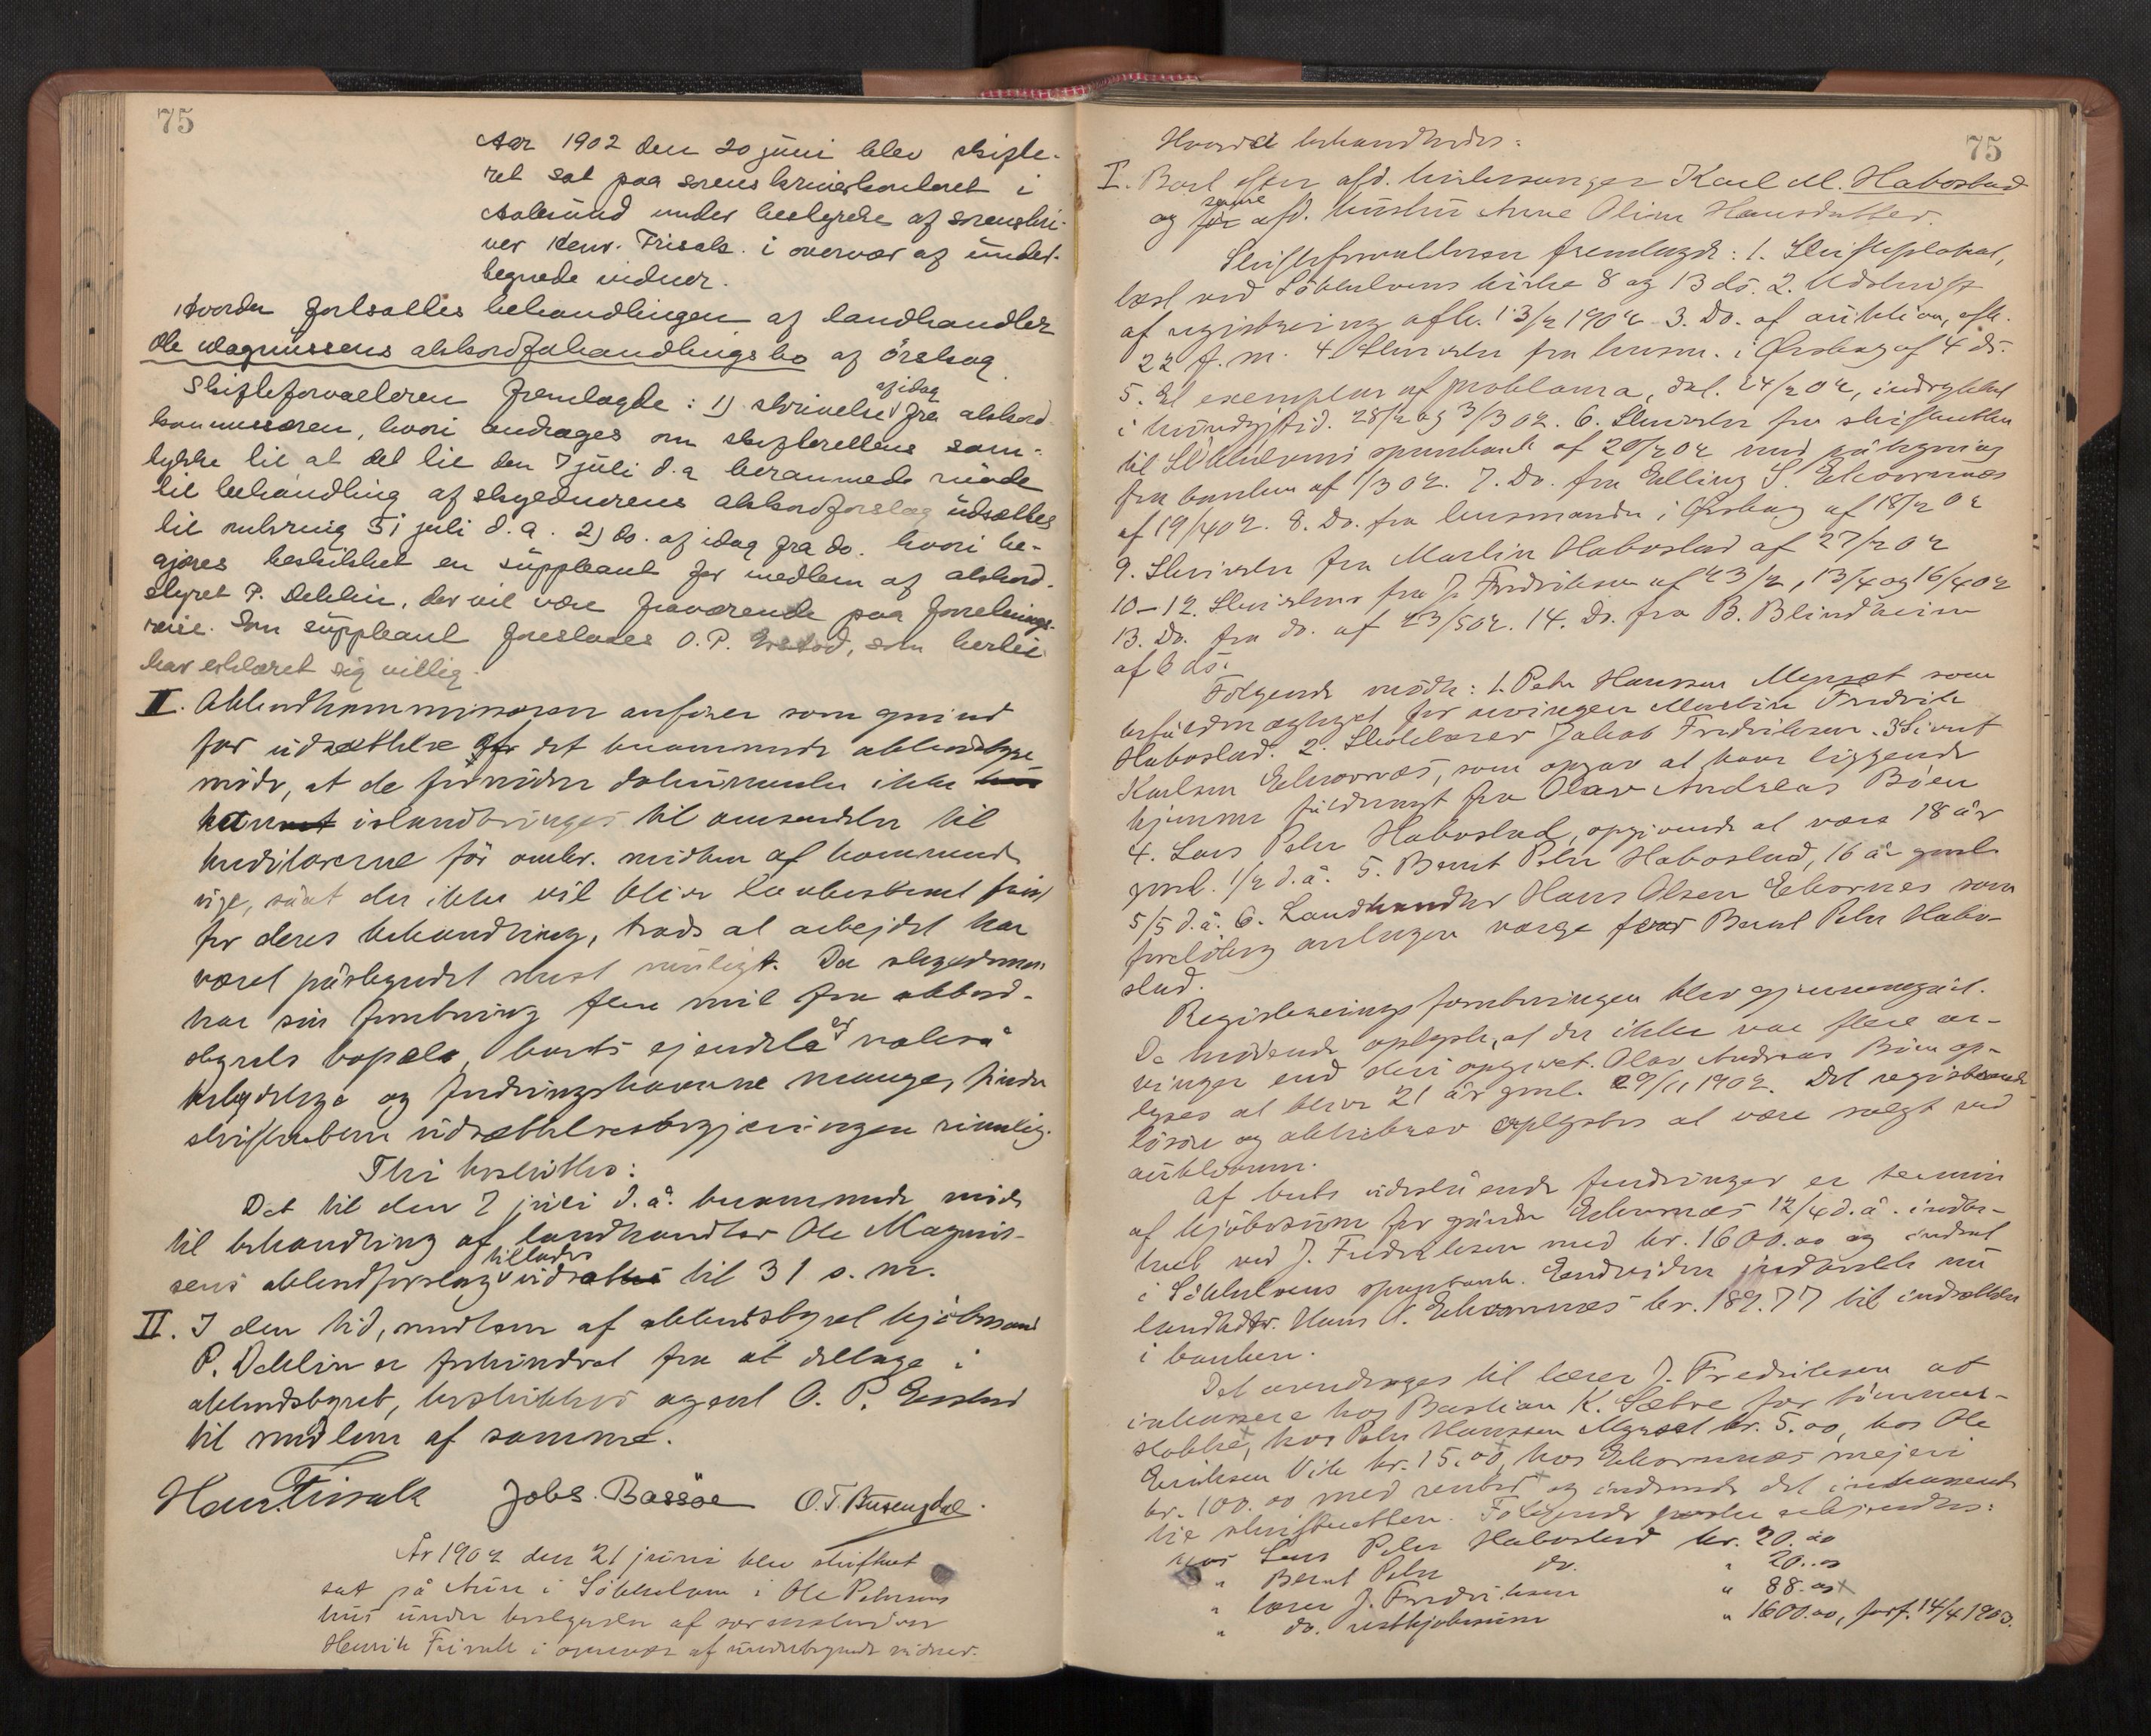 75
Aar 1902 den 20 juni blev skifte-
ret sat paa sorenskriverkontoret i
Aalesund under bestyrelse af sorenskri-
ver Henr. Frisak i overvær af under-
tegnede vidner.
Hvorda fortsattes behandlingen af landhandler
Ole Magnussens akkordforhandlingsbo af Örskog.
Skifteforvalteren fremlagde: 1) skrivelse af idag fra akkord-
kommissæren, hvori andrages om skifterettens sam-
tykke til at det til den 7 juli d.a. berammede møde
til behandling af skyldnerens akkordforslag udsættes
til omkring 31 juli d.a. 2) do. af idag fra do. hvori be-
gjæres beskikket en suppleant for medlem af akkord-
styret P. Dehlin, der vil være fraværende paa forretnings-
reise. Som suppleant foreslaaes O.P. Erstad, som hertil
har erklæret sig villig.
I. Akkordkommissæren anfører som grund
for udsættelse af det berammede akkord
møde, at de fornødne dokumenter ikke
kan istandbringes til omsendelse til
kreditorerne för omkr. midten af kommende
uge, såat der ikke vil blive levnet frist
for deres behandling, trods at arbejdet har
været påskyndet mest muligt. Da skyldneren
har sin forretning flere mil fra akkord-
styrets bopæle, boets ejendele er
og fordringshaverne mange, finder
skifteretten udsættelsesbegjæringen rimelig.
Thi besluttes:
Det til den 7 juli d.å. berammede möde
til behandling af landhandler Ole Magnus-
sens akkordforslag tillades udsat til 31 s.m.
II. I den tid, medlem af akkordstyret kjöbmand
P. Dehlin er forhindret fra at deltage i
akkordstyret, beskikkes agent O. P. Erstad
til medlem af samme.
Henr. Frisak Johs. Bassöe O.T. Busengdal.
År 1902 den 21 juni blev skifteret
sat på Aure i Sökkelven i Ole Petersens
hus under bestyrelse af sorenskriver
Henrik Frisak i overvær af undertegnede vidner.
75
Hvorda behandledes:
I. Boet efter afd. kirkesanger Karl M. Habostad
og före afd. hustru Anne Oline Hansdatter.
Skifteforvalteren fremlagde: 1. Skifteplakat,
læst ved Sökkelvens kirke 8 og 13 ds. 2. Udskrift
af registrering afh. 13/2 1902. 3. Do. af auktion, afh.
22 f.m. 4 Skrivelse fra lensm. i Ørskog af 4 ds.
5. Et exemplar af proklama, dat. 24/2 02, indrykket
i kundgj.tid. 28/2 og 3/3 02. 6. Skrivelse fra skifteretten
til Sökkelvens sparebank af 20/2 02 med påtegning
fra banken af 1/3 02. 7. Do. fra Elling S. Ekornnæs
af 19/4 02. 8. Do. fra lensmanden i Ørskog af 18/2 02
9. Skrivelse fra Martin Habostad af 27/2 02
10-12. Skrivelser fra J. Fredriksen af 23/2, 13/4 og 16/4 02
13. Do. fra do. af 23/5 02. 14. Do. fra B. Blindheim
af 6 ds.
Fölgende mödte: 1. Peter Hanssen Myrset som
befuldmægtiget for arvingen Martin Fredrik
Habostad. 2. Skolelærer Jakob Fredriksen. 3 Sivert
Karlsen Ekornnæs, som opgav at have liggende
hjemme fuldmagt fra Olav Andreas Böen
4. Lars Peter Habostad, opgivende at være 18 år
gml. 1/2 d.å. 5. Bernt Peter Habostad, 16 år gml.
5/5 d.å. 6. Landhandler Hans Olsen Ekornes som
foreløbig antagen værge for Bernt Peter Habo-
stad.
Registreringsforretningen blev gjennemgået.
De mödende oplyste, at der ikke var flere ar-
vinger end der opgivet. Olav Andreas Böen op-
lyses at blive 21 år gml. 29/11 1902. Det registrerede
lösöre og aktiebrev oplystes at være solgt ved
auktionen.
Af boets udestående fordringer er termin
af kjöbesum for gården Ekornnæs 12/4 d.å. indbe-
talt ved J. Fredriksen med kr. 1600.00 og indsat
i Sökkelvens sparebank. Endvidere indbetalte nu
landhdlr. Hans O. Ekornnæs kr. 189.77 til indsættelse
i banken.
Det overdrages til lærer J. Fredriksen at
inkassere hos Bastian K. Sæbre for tömmer-
stokke, hos Peter Hanssen Myrset kr. 5.00, hos Ole
Eriksen Vik kr. 15.00, hos Ekornnæs mejeri
kr. 100.00 med renter og indsende det inkasserede
til skifteretten. Fölgende poster erkjendtes:
Hos Lars Peter Habostad kr. 20.00
" Bernt Peter do. " 20.00
" lærer J. Fredriksen " 88.00
" do. restkjöbesum " 1600.00, forf. 14/4 1903.